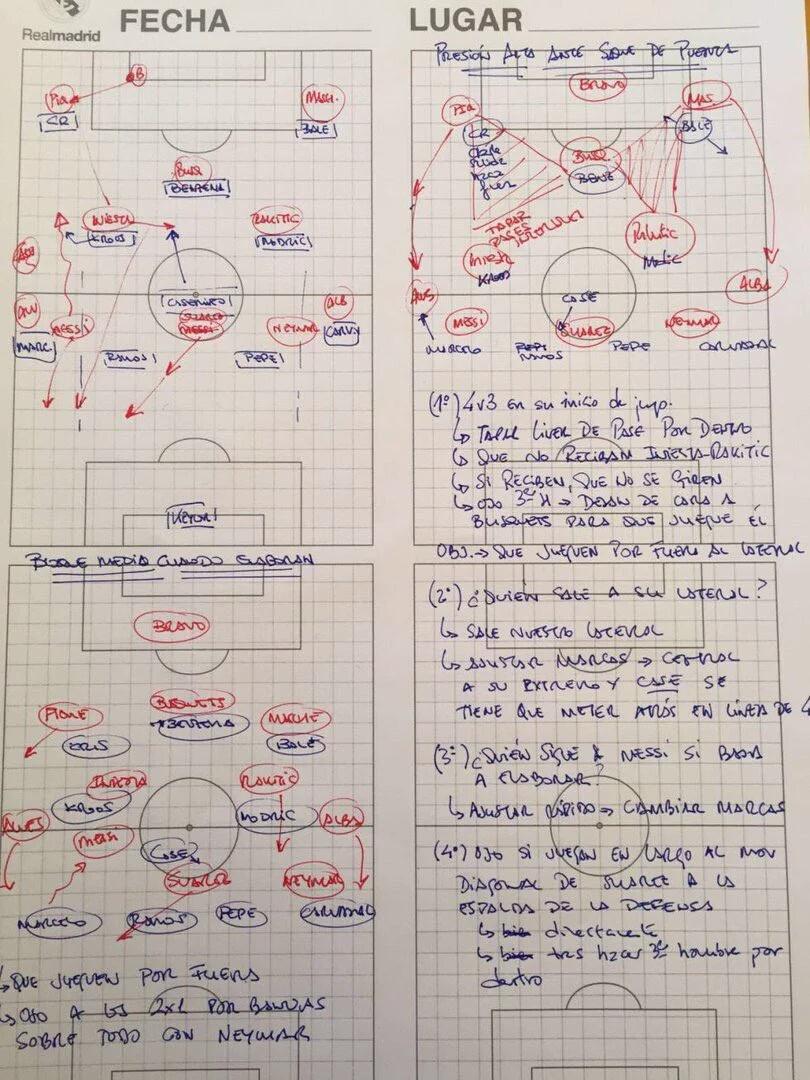 Realmadrid
FECHA
LUGAR
B
Piq
CR
MASCH.
BALE
BUSQ
BENZEMA
INIESTA
KROOS
RAKITIC
MODRIC
CASEMIRO
SUAREZ
MESSI
MESSI
NEYMAR
ALB
CARVJ
MARC.
RAMOS
PEPE
KEYLOR
PRESIÓN ALTA ANTE SAQUE DE PUERTA
BRAVO
PIQ
MAS.
CR
BALE
BUSQ
BENZ
TAPAR
PASES
INTERIORES
INIEST
KROOS
RAKITIC
ALVS
ALBA
CASE
MESSI
SUAREZ
NEYMAR
MARCELO
PEPE
RAMOS
PEPE
CARVAJAL
(1º) 4v3 en su inicio de jugo.
↳ TAPAR LINEA DE PASE POR DENTRO
↳ QUE NO RECIBAN INIESTA-RAKITIC
↳ SI RECIBEN, QUE NO SE GIREN
↳ OJO 3er H → DEJAN DE CARA A
BUSQUETS PARA QUE JUEGUE ÉL
OBJ. → QUE JUEGUEN POR FUERA AL LATERAL
BLOQUE MEDIO CUANDO ELABORAN
BRAVO
PIQUE
BUSQUETS
MASCHE
CRIS
BENZEMA
BALE
INIESTA
RAKITIC
KROOS
MODRIC
ALVES
ALBA
MESSI
CASE
SUAREZ
NEYMAR
MARCELO
RAMOS
PEPE
CARVAJAL
↳ QUE JUEGUEN POR FUERA
↳ OJO A LOS 2x1 POR BANDAS
SOBRE TODO CON NEYMAR
(2º) ¿QUIÉN SALE A SU LATERAL?
↳ SALE NUESTRO LATERAL
↳ AJUSTAR MARCAS → CENTRAL
A SU EXTREMO Y CASE SE
TIENE QUE METER ATRÁS EN LÍNEA DE 4
(3º) ¿QUIÉN SIGUE A MESSI SI BAJA
A ELABORAR?
↳ AJUSTAR RÁPIDO → CAMBIAR MARCAS
(4º) OJO SI JUEGAN EN LARGO AL MOV
DIAGONAL DE SUAREZ A LA
ESPALDA DE LA DEFENSA
↳ bien directamente
↳ bien tras hzar 3er hombre por
dentro